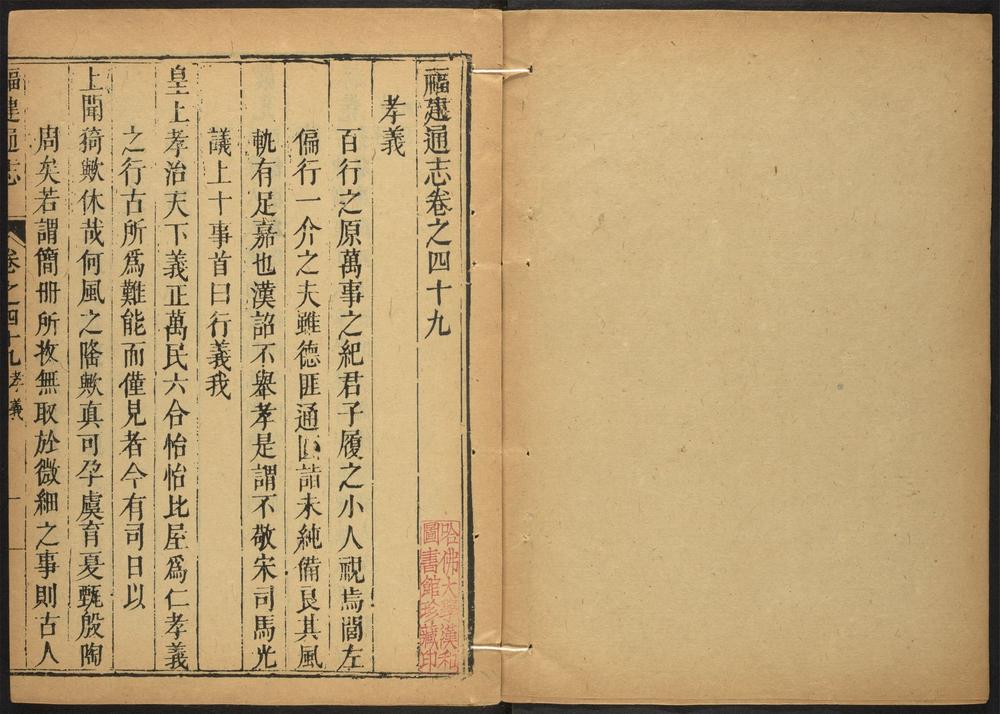 福建通志卷之四十九
孝義
百行之原萬事之紀君子履之小人視焉閭左
偏行一介之夫雖德匪通詣未純備良其風
軌有足嘉也漢詔不舉孝是謂不敬宋司馬光
議上十事首曰行義我
皇上孝治天下義正萬民六合怡怡比屋爲仁孝義
之行古所爲難能而僅見者今有司日以
上聞猗歟休哉何風之隆歟真可孕虞育夏甄殷陶
周矣若謂簡冊所攷無取於微細之事則古人
福建通志 卷之四十九 孝義 一
哈佛大學漢和
圖書館珍藏印